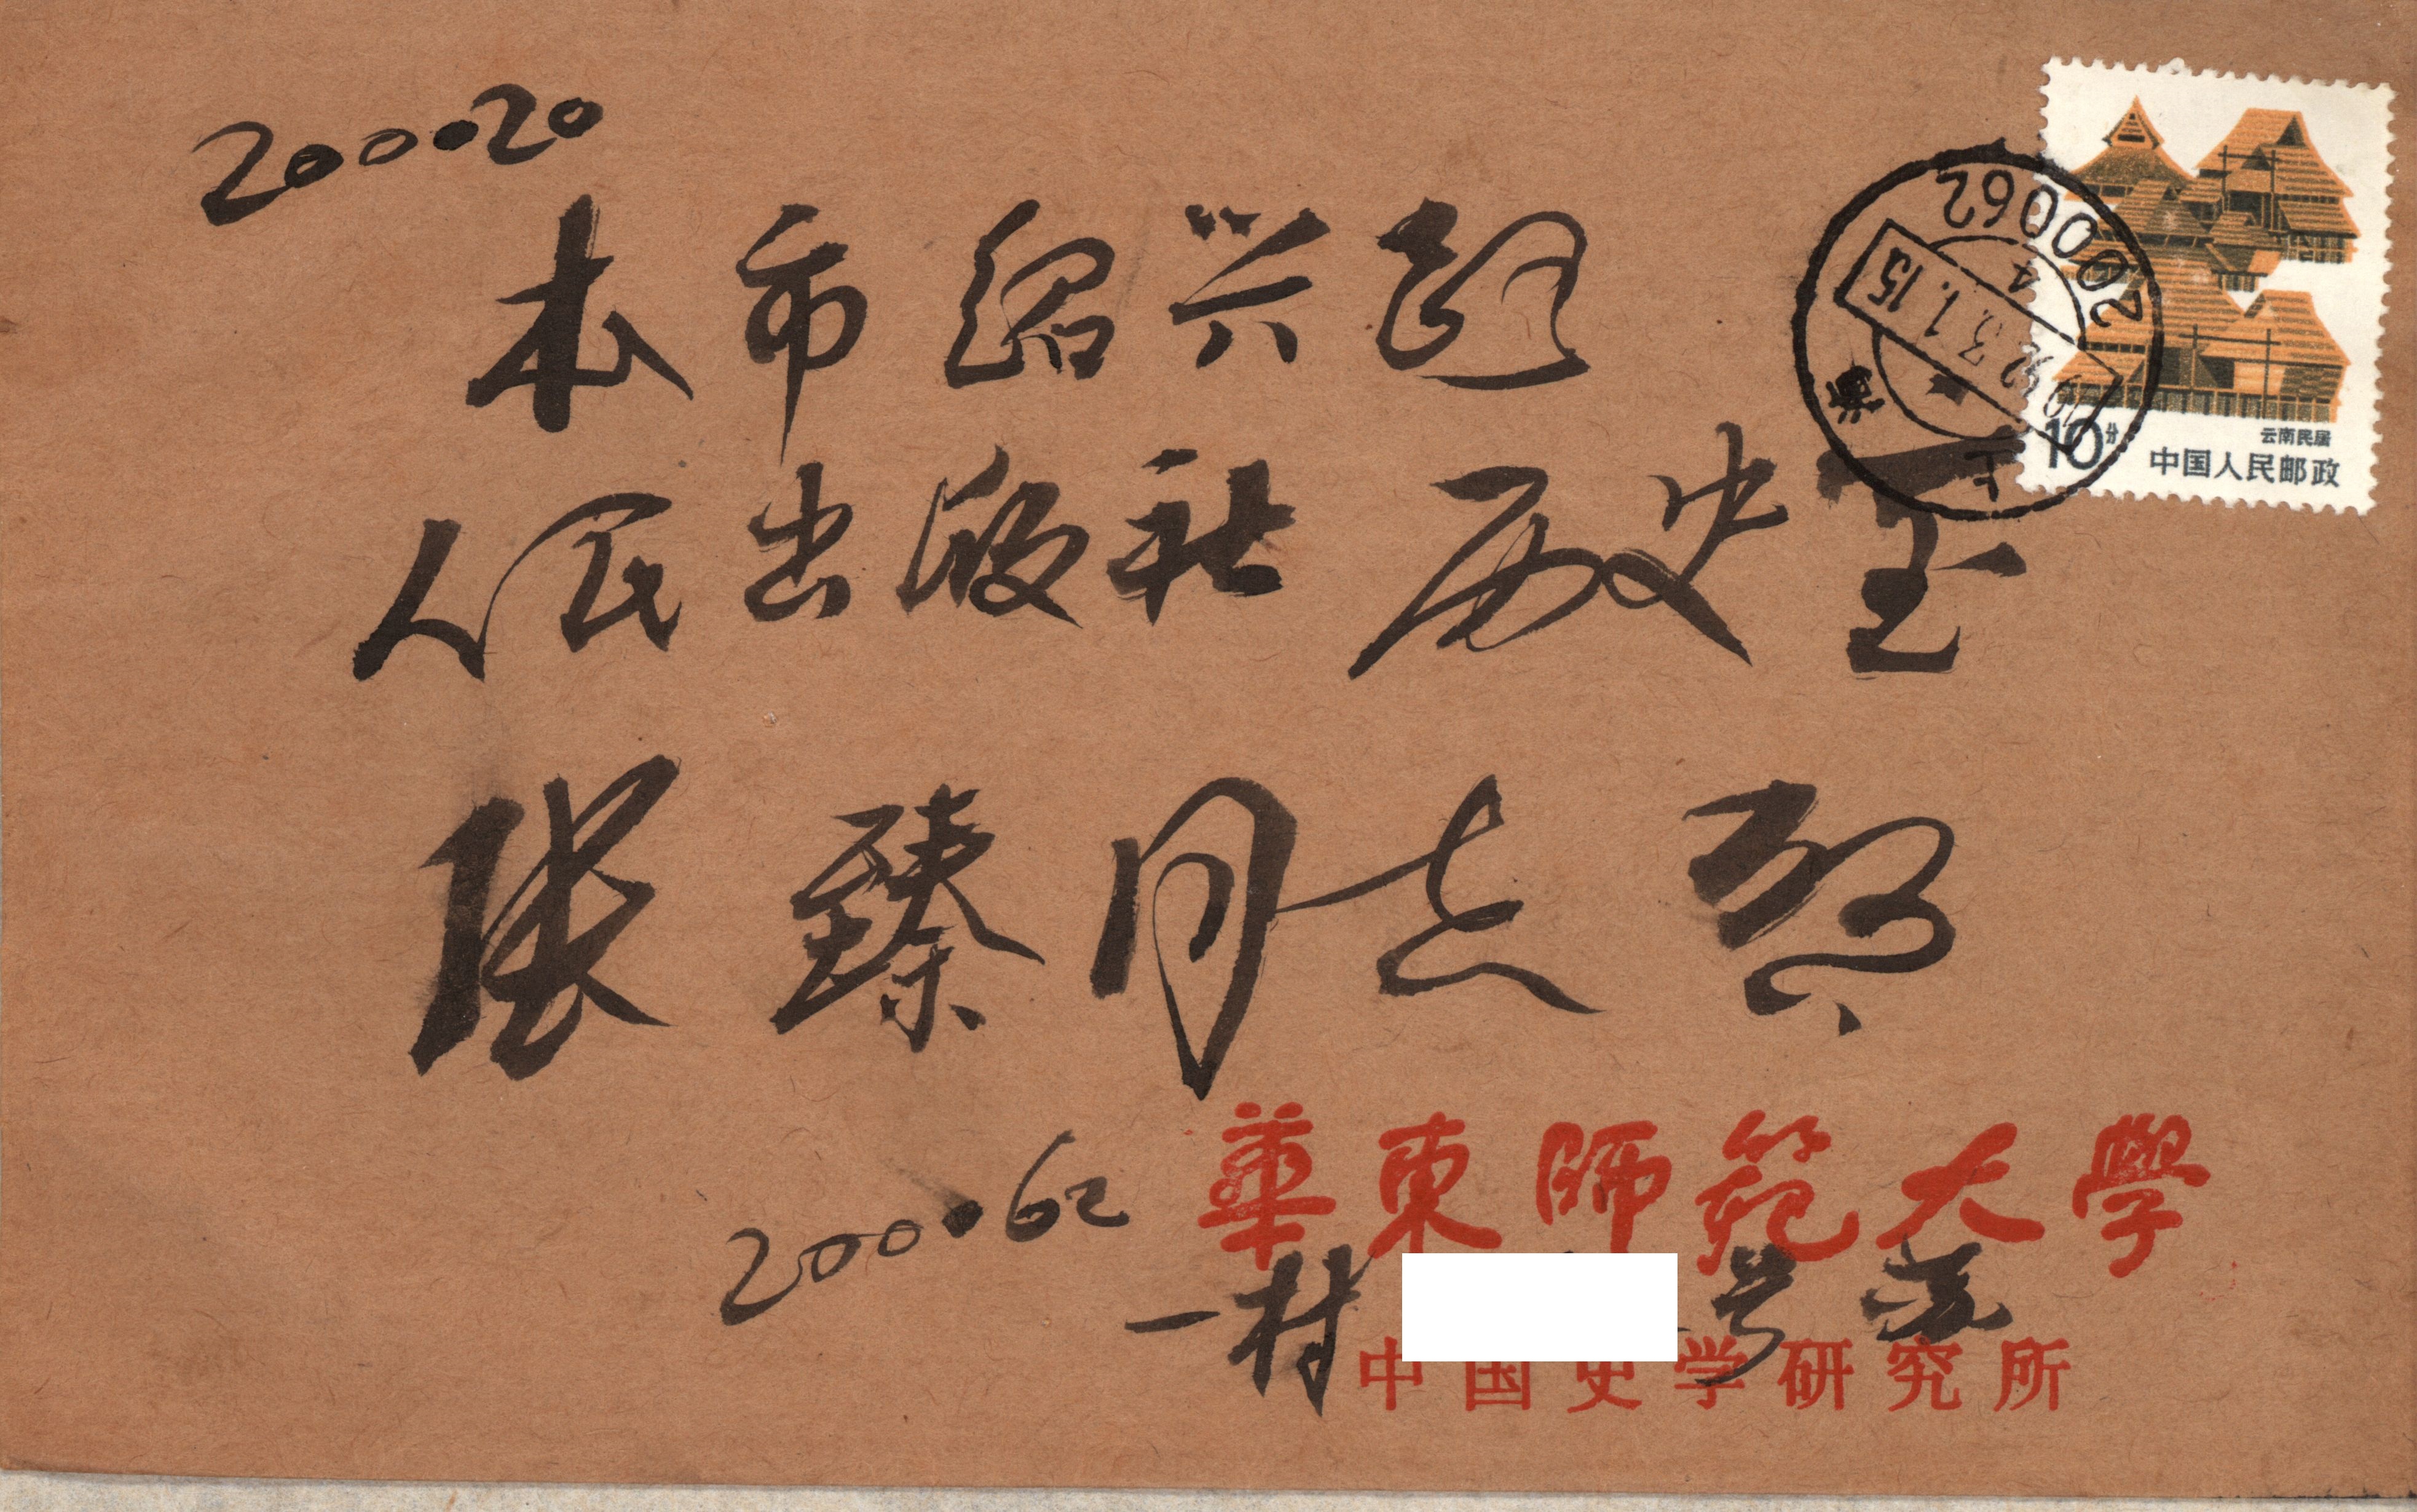 200020
本市绍兴路
人民出版社 历史室
张臻同志启
200062 華東師範大學
一村 号 苏
中国史学研究所
云南民居
10分 中国人民邮政
200062
4
1992.3.1.15
上海